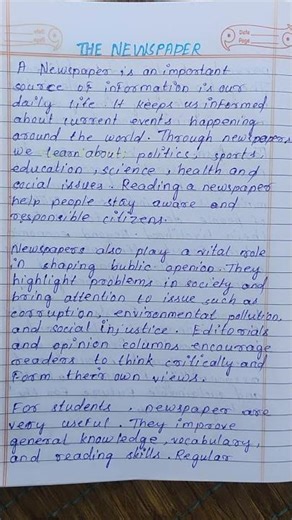 Date
Page
THE NEWSPAPER
A Newspaper is an important
source of information is our
daily life. It keeps us informed
about current events happening
around the world. Through newspapers
we learn about politics, sports,
education, science, health and
social issues. Reading a newspaper
help people stay aware and
responsible citizens.
Newspapers also play a vital role
in shaping public openion. They
highlight problems in society and
bring attention to issue such as
corruption, environmental pollution,
and social injustice. Editorials
and opinion columns encourage
readers to think critically and
Form their own views.
For students, newspaper are
very useful. They improve
general knowledge, vocabulary,
and reading skills. Regular